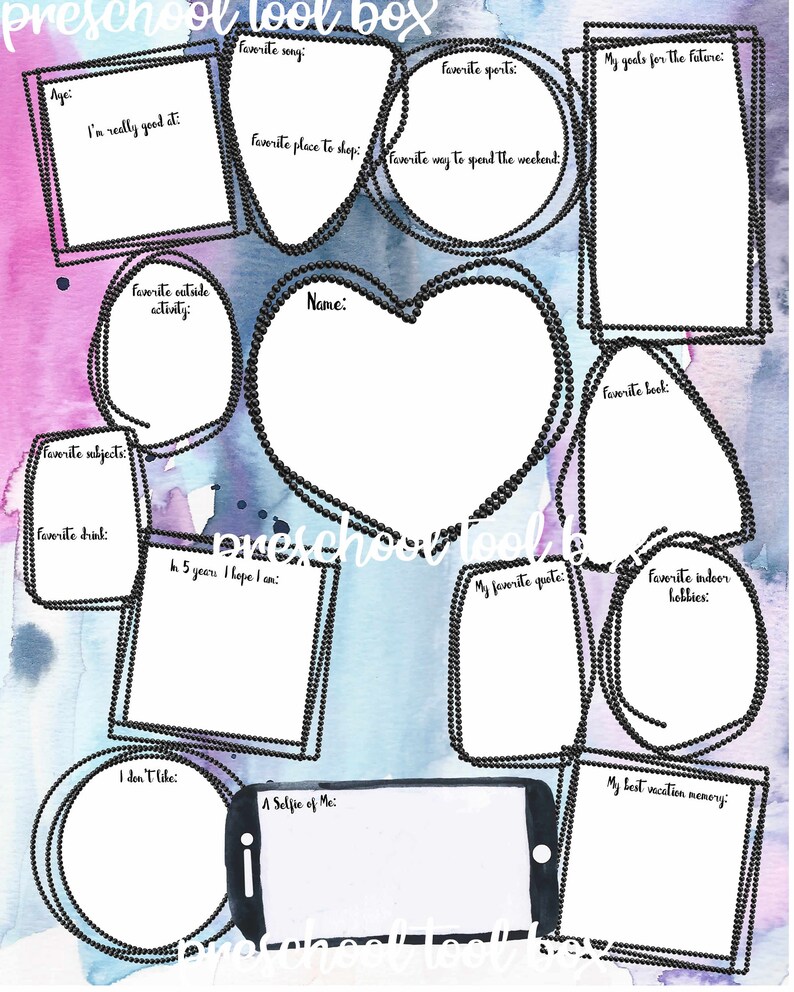 preschool tool box
Age:
I'm really good at:
Favorite song:
Favorite place to shop:
Favorite sports:
Favorite way to spend the weekend:
My goals for the Future:
Favorite outside
activity:
Name:
Favorite book:
Favorite subjects:
Favorite drink:
preschool tool box
In 5 years I hope I am:
My favorite quote:
Favorite indoor
hobbies:
I don't like:
A Selfie of Me:
My best vacation memory:
preschool tool box